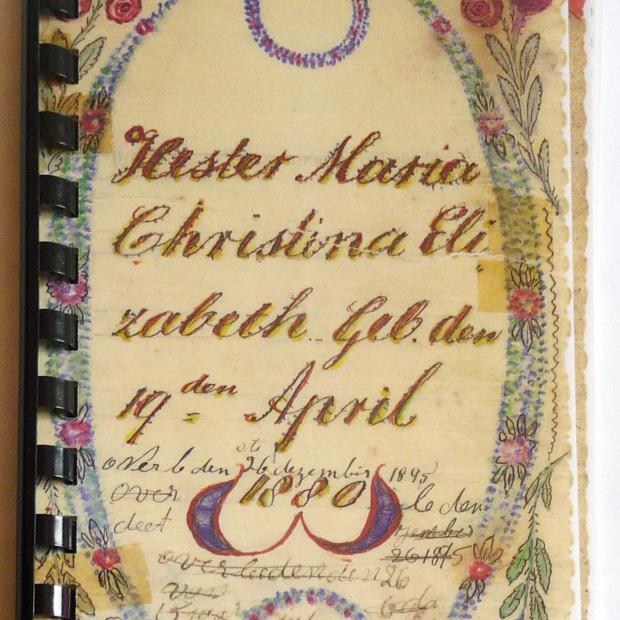 Hester Maria
Christina Eli
zabeth. Geb. den
19 den April
overl den 26 dezember 1895
1880
over le den
deet
zember
26 18/5
overleden den 26